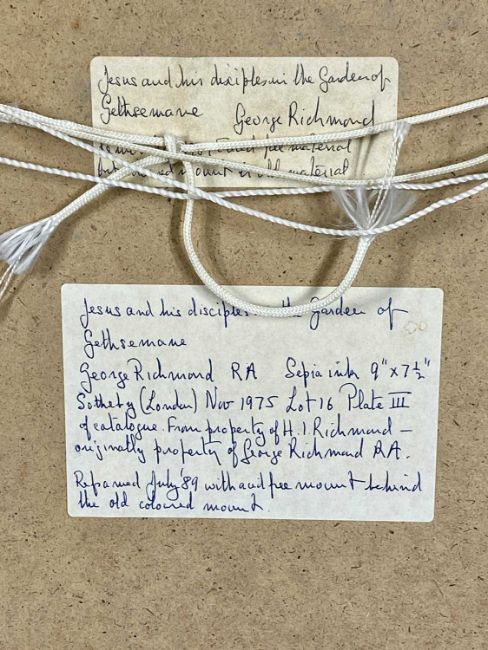 Jesus and his disciples in the Garden of
Gethsemane George Richmond
material
mount old material
Jesus and his disciples the Garden of
Gethsemane
George Richmond RA Sepia ink 9" x 7½"
Sotheby (London) Nov 1975 Lot 16 Plate III
of catalogue. From property of H. I. Richmond –
originally property of George Richmond RA.
Reframed July '89 with acid free mount behind
the old coloured mount.